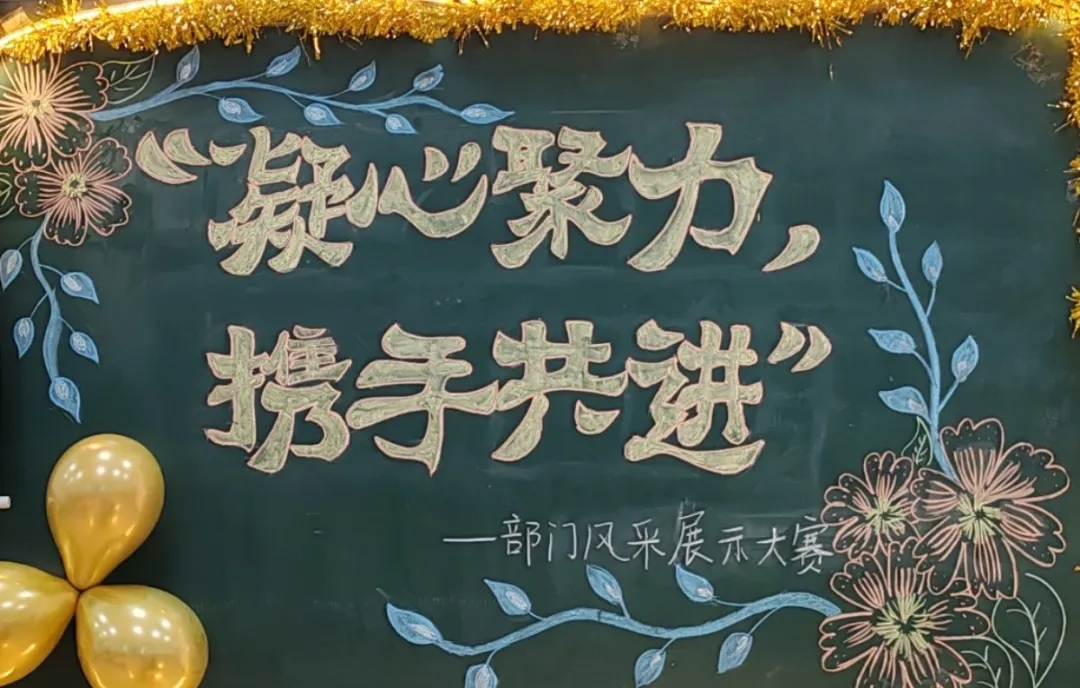 “凝心聚力，
携手共进”
—部门风采展示大赛